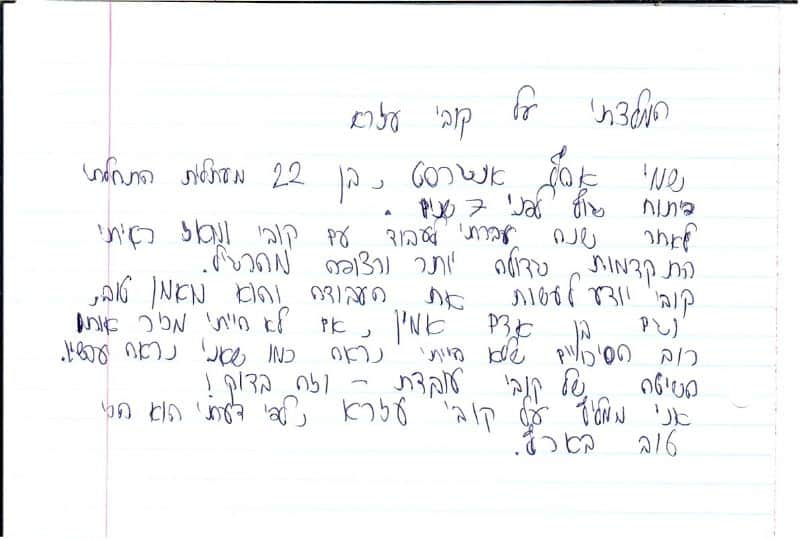 המלצתי על קובי עזרא
שמי אסף אנטרסט, בן 22 מעתלית התחלתי
פיתוח גוף לפני 7 שנים.
לאחר שנה עברתי לעבוד עם קובי ומאז ראיתי
התקדמות גדולה יותר ורצופה מהרגיל.
קובי יודע לעשות את העבודה והוא מאמן טוב,
וגם בן אדם אמין, אם לא הייתי מכיר אותו
רוב הסיכויים שלא הייתי נראה כמו שאני נראה עכשיו.
השיטה של קובי עובדת - וזה בדוק!
אני ממליץ על קובי עזרא, לפי דעתי הוא הכי
טוב בארץ.